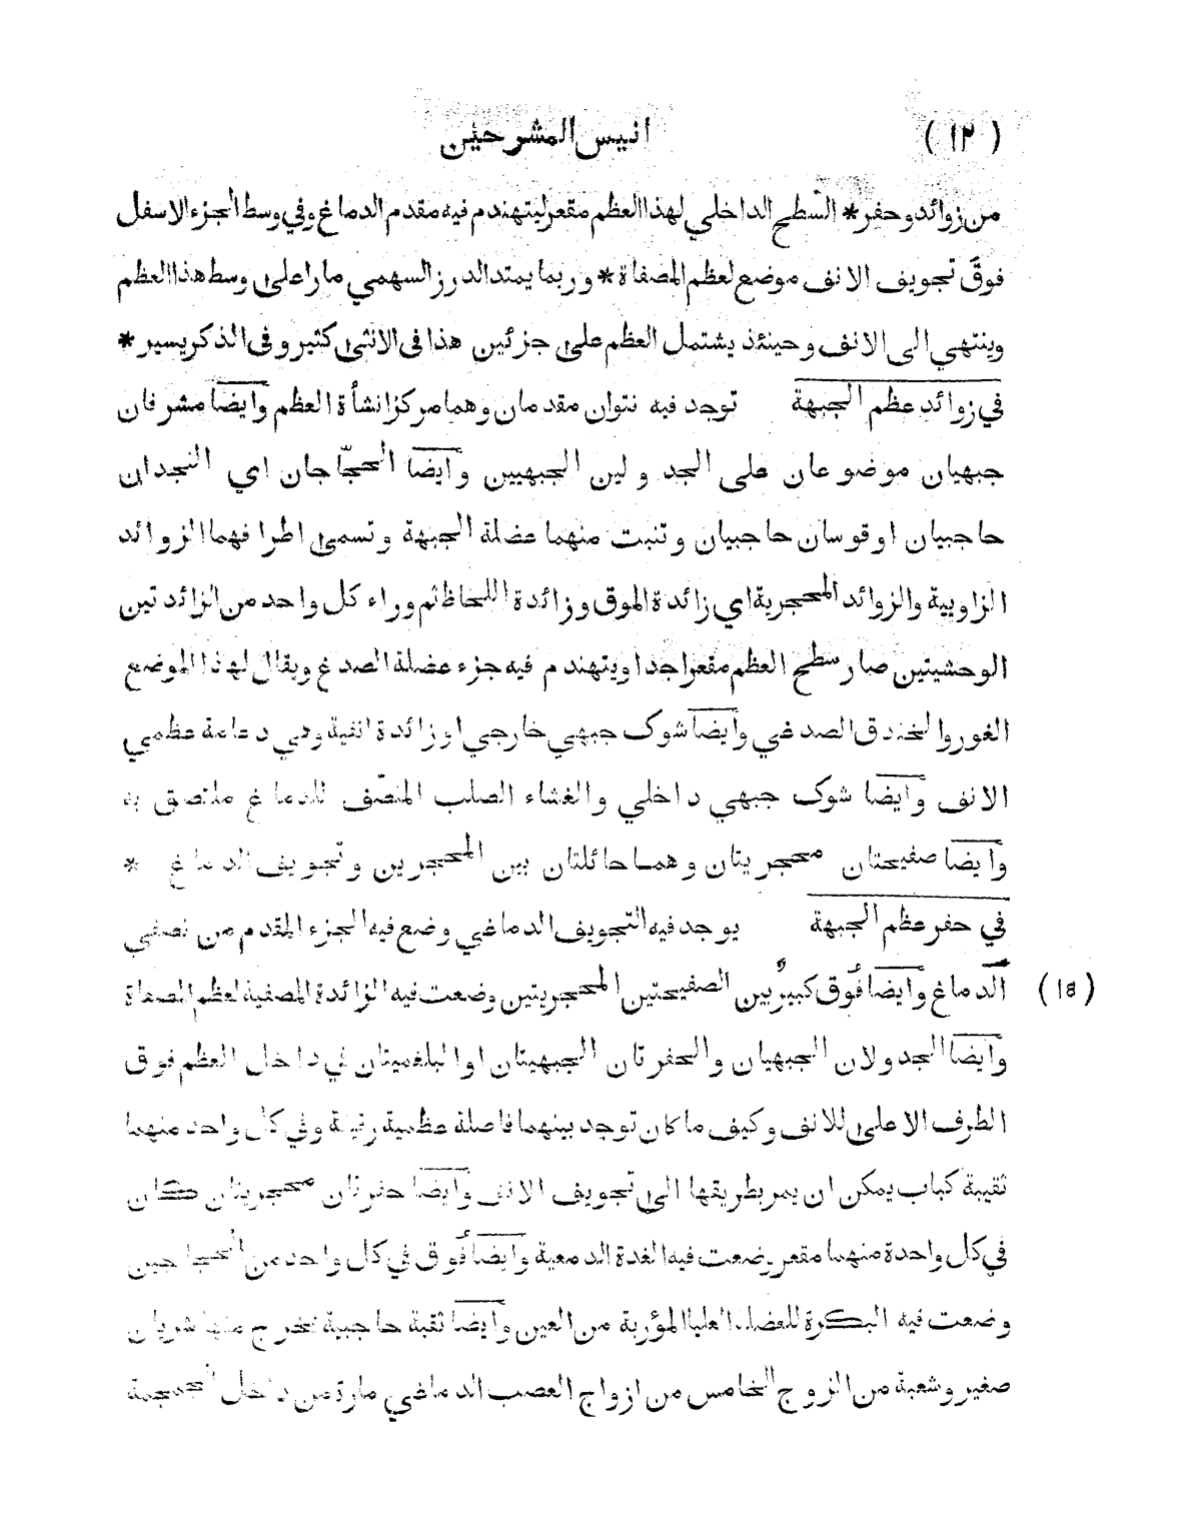 (١٢) انيس المشرحين
من زوائد وحفر * السّطح الداخلي لهذا العظم مقعر ليتهندم فيه مقدم الدماغ وفي وسط الجزء الاسفل
فوق تجويف الانف موضع لعظم المصفاة * وربما يمتد الدرز السهمي مارا على وسط هذا العظم
وينتهي الى الانف وحينئذ يشتمل العظم على جزئين هذا في الانثى كثير وفي الذكر يسير *
في زوائد عظم الجبهة توجد فيه نتوان مقدمان وهما مركزا نشأة العظم وايضا مشرفان
جبهيان موضوعان على الجدولين الجبهيين وايضا الحجّاجان اي النجدان
حاجبيان او قوسان حاجبيان وتنبت منهما عضلة الجبهة وتسمى اطرافهما الزوائد
الزاويية والزوائد المحجرية اي زائدة الموق وزائدة اللحاظ ثم وراء كل واحد من الزائدتين
الوحشيتين صار سطح العظم مقعرا جدا ويتهندم فيه جزء عضلة الصدغ ويقال لهذا الموضع
الغور والخندق الصدغي وايضا شوك جبهي خارجي او زائدة انفية وهي دعامة عظمي
الانف وايضا شوك جبهي داخلي والغشاء الصلب المنصّف للدماغ ملتصق به
وايضا صفيحتان محجريتان وهما حائلتان بين المحجرين وتجويف الدماغ *
في حفر عظم الجبهة يوجد فيه التجويف الدماغي وضع فيه الجزء المقدم من نصفي
الدماغ وايضا فُوق كبيرٌ بين الصفيحتين المحجريتين وضعت فيه الزائدة المصفية لعظم المصفاة (١٥)
وايضا الجدولان الجبهيان والحفرتان الجبهيتان او البلغميتان في داخل العظم فوق
الطرف الاعلى للانف وكيف ما كان توجد بينهما فاصلة عظمية رقيقة وفي كل واحد منهما
ثقيبة كباب يمكن ان يمر بطريقها الى تجويف الانف وايضا حفرتان محجريتان كان
في كل واحدة منهما مقعر وضعت فيه الغدة الدمعية وايضا فُوق في كل واحد من الحجاجين
وضعت فيه البكرة للعضلة العليا المؤربة من العين وايضا ثقبة حاجبية تخرج منها شريان
صغير وشعبة من الزوج الخامس من ازواج العصب الدماغي مارة من داخل الجمجمة